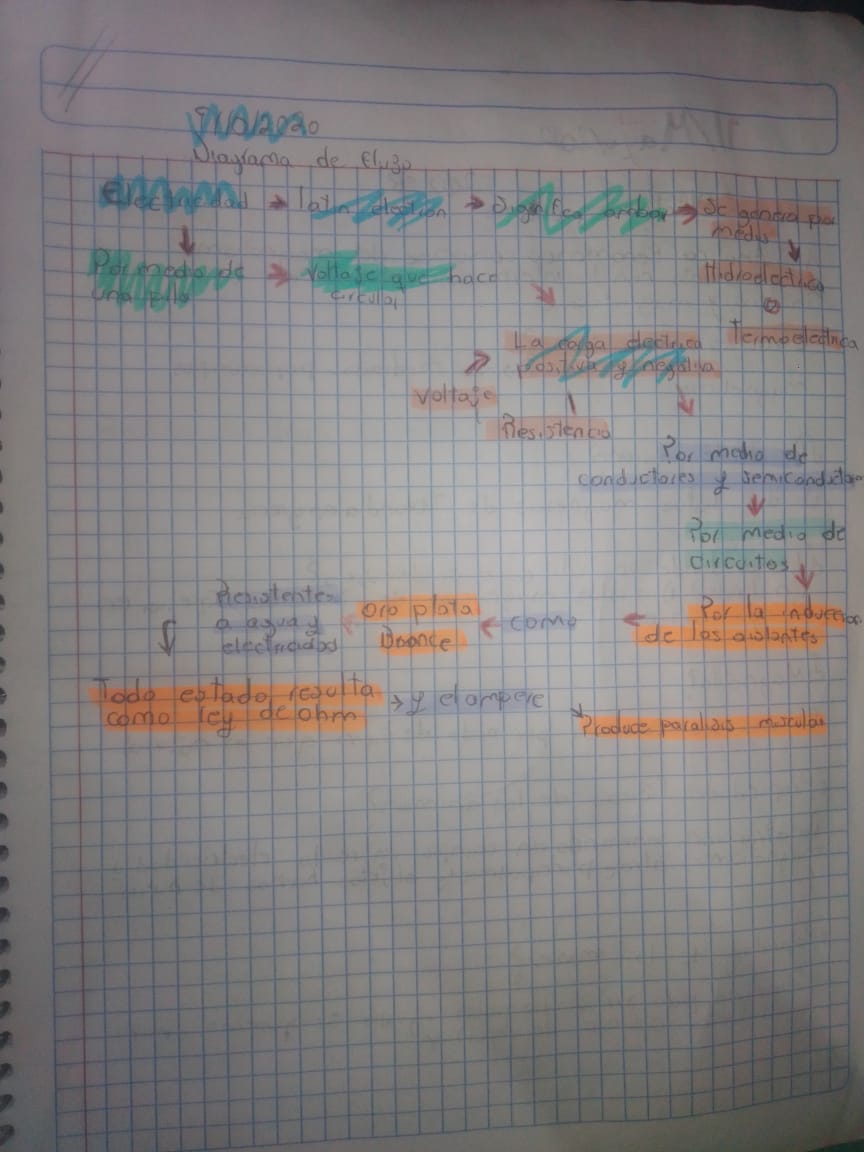 Diagrama de flujo
Electricidad → latin electron → Significa → Se genera por
medio
Por medio de → Voltaje que hace
una pila circular
Hidroelectrica
o
Termoelectrica
La carga electrica
positiva y negativa
Voltaje
Resistencia
Por medio de
conductores y semiconductor
Por medio de
circuitos
Por la
de los aislantes
como
Oro plata
Resistentes
a agua y
electricidad
Todo estado resulta
como ley de ohm
→ y el ampere
Produce paralisis muscular